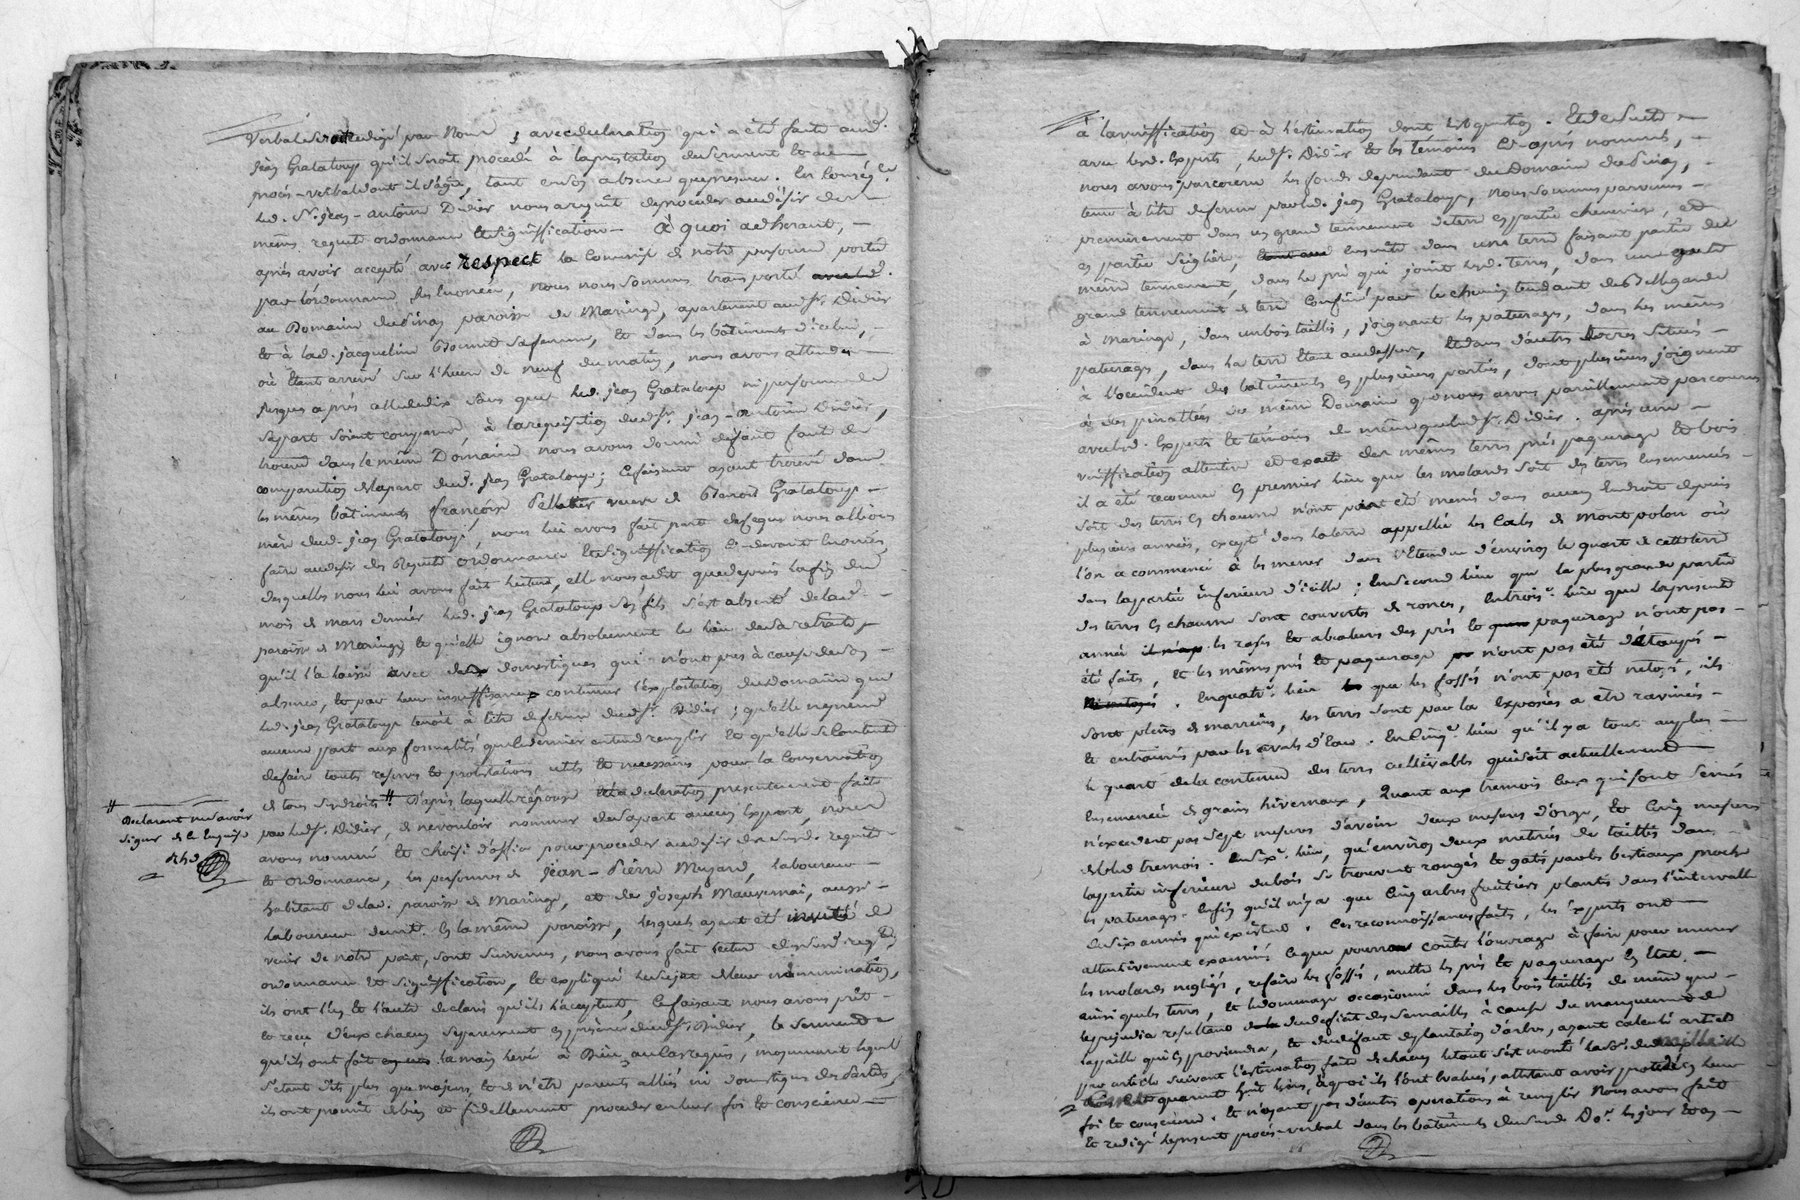 verbal serait rédigé par Nous, avec declaration qui a été faite aud.
Jean Grataloup qu'il seroit procédé à la prestation de serment et au
procès-verbal dont il s'agit, tant en son absence que presence. En conséq.ce
led. Sr. jean-antoine Didier nous a requit de proceder au désir des
mêmes requete ordonnance et signiffication - à quoi adherant, -
après avoir accepté avec respect la Commise de notre personne portée
par l'ordonnance susénoncée, nous nous sommes transporté
au Domaine du Pinay paroisse de Maringe, apartenant aud. Sr. Didier
et à lad. jacqueline sa femme, et dans les bâtiments d'icelui, -
où étant arrivé sur l'heure de neuf du matin, nous avons attendu
jusques après celle de dix sans que led. jean Grataloup ni personne de
sa part soient comparus, à la requisition dud. Sr. jean-antoine Didier,
trouvé dans le même Domaine nous avons donné défaut faute de
comparution de la part dud. Jean Grataloup; ce faisant ayant trouvé dans
les mêmes bâtiments françoise Pelletier veuve de Benoit Grataloup -
mère dud. jean Grataloup, nous lui avons fait part de ce que nous allions
faire au desir des Requete ordonnance et signiffication ci-devant énoncées,
desquelles nous lui avons fait lecture, elle nous a dit que depuis la fin du
mois de mars dernier led. jean Grataloup son fils s'est absenté de lad. -
paroisse de Maringe et qu'elle ignore absolument le lieu de sa retraite,
qu'il l'a laissé avec des domestiques qui n'ont peu à cause de son -
absence, et par leur insuffisance continuer l'exploitation du domaine que
led. jean Grataloup tenoit à titre de ferme dud. Sr. Didier; qu'elle ne prend
aucune part aux formalités que ce dernier entend remplir et qu'elle se contente
de faire toutes reserves et protestations utiles et necessaires pour la conservation
de tous ses droits. # D'après laquelle réponse et la declaration presentement faite
par led. Sr. Didier, de ne vouloir nommer de sa part aucun Expert, nous
# Declarant ne savoir
signer de ce Enquise
avons nommé et choisi d'office pour proceder au desir desd. requete
et ordonnance, les personnes de Jean-Pierre Muzard, laboureur -
habitant de lad. paroisse de Maringe, et de Joseph Mauvernai, aussi -
laboureur demt. en la même paroisse, lesquels ayant été invité de
venir de notre part, sont survenus, nous avons fait lecture desd. req.te
ordonnance et signiffication, et expliqué le sujet de leur nomination,
ils ont l'un et l'autre declaré qu'ils l'acceptent, ce faisant nous avons pris -
et recu d'eux chacun separement en presence dud. Sr. Didier, le serment
qu'ils ont fait la main levée à Dieu au cas requis, moyennant lequel
s'étant dits plus que majeurs, et de n'etre parents alliés ni domestiques des Parties,
ils ont promit de bien et fidellement proceder en leur foi et conscience -
à la vérification et à l'estimation dont est question. Et de suite -
avec lesd. Experts, led. Sr. Didier et les témoins ci-après nommés, -
nous avons parcouru les fonds dependant du Domaine du Pinay, -
tenu à titre de ferme par led. jean Grataloup, nous sommes parvenus -
premierement dans un grand tennement de terre en partie cheneviere, et
en partie Seiglère, ensuite dans une terre faisant partie du
même tennement, dans le pré qui joint lesd. terres, dans un autre
grand tennement de terre confiné par le chemin tendant de Bellegarde
à Maringe, dans un bois taillis, joignant les paturages, dans les mêmes
paturages, dans la terre étant au dessus, et dans d'autres terres situées -
à l'occident des bâtiments en plusieurs parties, dont plusieurs joignent
à des pinattées du même Domaine que nous avons pareillement parcourus
avec lesd. Experts et témoins de même que led. Sr. Didier. après une -
vériffication attentive et exacte des mêmes terres prés paquerage et bois
il a été reconnu en premier lieu que les molards soit des terres ensemencés -
soit des terres en chaume n'ont point été menés dans aucun Endroit depuis
plusieurs années, excepté dans la terre appellée les Cales de Montpolon où
l'on a commencé à les mener dans l'étendue d'environ le quart de cette terre
dans la partie inferieure d'icelle; en second lieu que la plus grande partie
des terres en chaume sont couvertes de ronces, en trois.e lieu que la presente
année les rases et abaleurs des prés et paquerage n'ont pas -
été faits, et les mêmes prés et paquerage n'ont pas été détaupés -
. en quatr.e lieu que les fossés n'ont pas été netoyé, ils
sont pleins de marreins, les terres sont par la exposées a être ravinées -
et entrainés par les avals d'Eau. en Cinq.e lieu qu'il y a tout au plus -
le quart de la contenue des terres cultivables qui soit actuellement
ensemencé de grains hivernaux, quant aux tremois ceux qui sont semés
n'excedent pas Sept mesures d'avoine deux mesures d'orge, et Cinq mesures
de bled tremois. en Six.e lieu, qu'environ deux metrées de taillis dans
la partie inferieure du bois se trouvent rongés et gatés par les bestiaux proche
les paturages. enfin qu'il n'y a que Cinq arbres fruitiers plantés dans l'intervalle
de six années qui existent. Ces reconnoissances faites, les Experts ont -
attentivement examiné ce que pourroit couter l'ouvrage à faire pour mener
les molards negligés, refaire les fossés, mettre les prés et paquerage en Etat, -
ainsi que les terres, et le dommage occasionné dans les bois taillis de même que -
le prejudice resultant du deficit des semailles à cause du manquement de
la paille qui en proviendra, et du défaut de plantation d'arbres, ayant calculé article
par article suivant l'estimation faite de chacun le tout s'est monté à la so.e de mille
Cent et quarante huit livres, à quoi ils l'ont évalué, attestant avoir procédé en leur
foi et conscience. Et n'ayant pas d'autres operations à remplir Nous avons fait
et redigé le present procès-verbal dans les bâtiments dud. Do.e les jour et an -